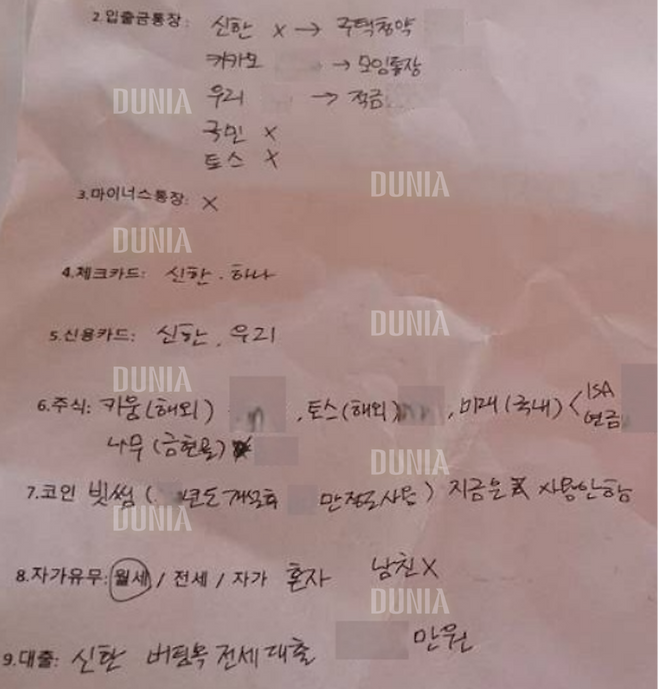 2.입출금통장: 신한 X → 주택청약
카카오 → 모임통장
DUNIA
우리 → 적금
국민 X
토스 X
DUNIA
3.마이너스통장: X
DUNIA
4.체크카드: 신한. 하나
DUNIA
5.신용카드: 신한, 우리
DUNIA
6.주식: 키움(해외) , 토스(해외) , 미래(국내) < ISA
연금
나무(금현물)
DUNIA
7.코인 빗썸 ( 년도 개설후 만정도사용) 지금은 사용안함
DUNIA
8.자가유무: 월세 / 전세 / 자가 혼자 남친X
DUNIA
9.대출: 신한 버팀목 전세대출 만원